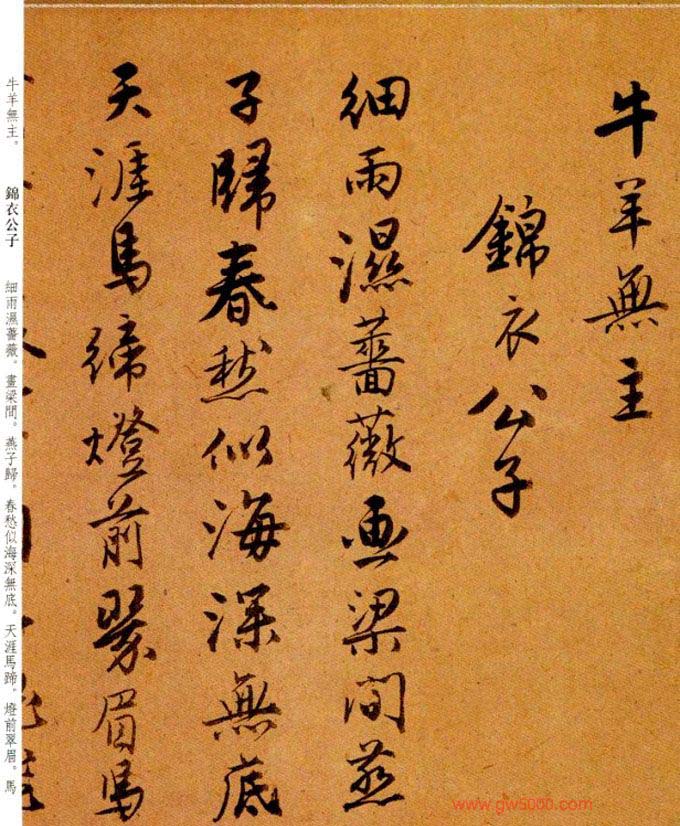 牛羊無主
錦衣公子
細雨濕薔薇画梁間燕
子歸春愁似海深無底
天涯馬蹄燈前翠眉馬
牛羊無主。 錦衣公子 細雨濕薔薇。畫梁間。燕子歸。春愁似海深無底。天涯馬蹄。燈前翠眉。馬
www.gw5000.com